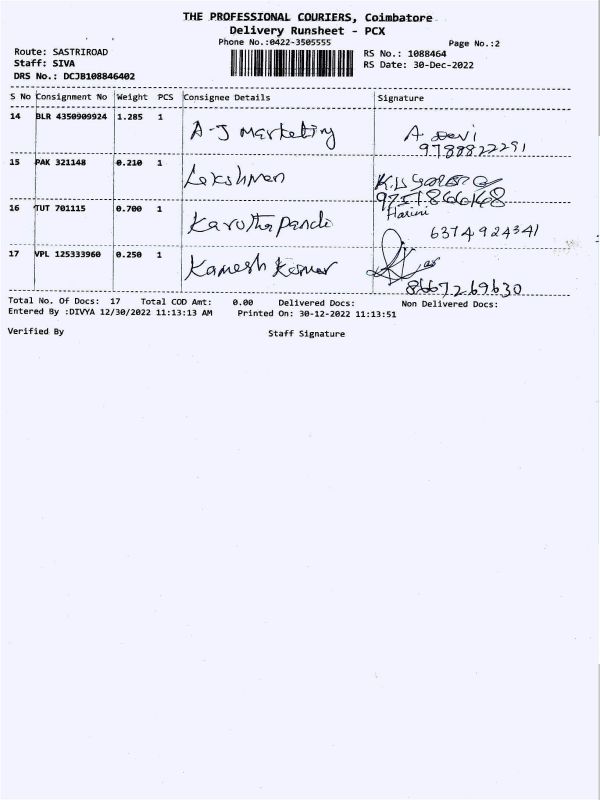 THE PROFESSIONAL COURIERS, Coimbatore
Delivery Runsheet - PCX
Phone No.:0422-3505555
Page No.:2
Route: SASTRIROAD
RS No.: 1088464
Staff: SIVA
RS Date: 30-Dec-2022
DRS No.: DCJB108846402
S No Consignment No Weight PCS Consignee Details Signature
14 BLR 4350909924 1.285 1 A-J Marketing A Devi
9788822291
15 PAK 321148 0.210 1 Lekshman
16 TUT 701115 0.700 1 Karuthapandi Harini
6374924341
17 VPL 125333960 0.250 1 Kamesh Kumar
8667269630
Total No. Of Docs: 17 Total COD Amt: 0.00 Delivered Docs: Non Delivered Docs:
Entered By :DIVYA 12/30/2022 11:13:13 AM Printed On: 30-12-2022 11:13:51
Verified By Staff Signature